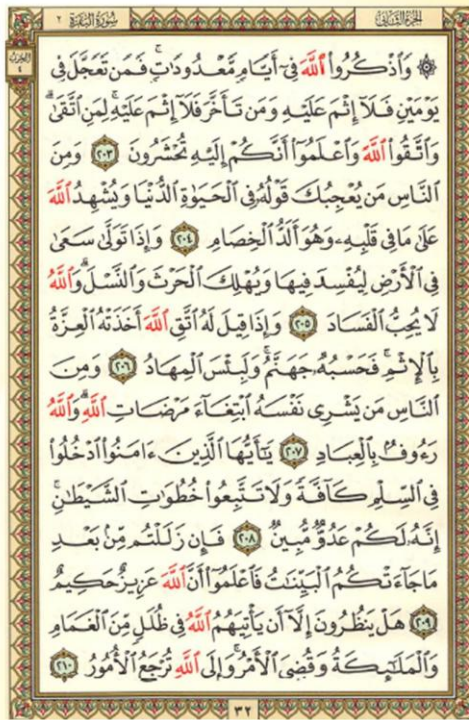 الجزء الثاني
سورة البقرة ٢
الحزب
٤
۞ وَٱذۡكُرُواْ ٱللَّهَ فِيٓ أَيَّامٖ مَّعۡدُودَٰتٖۚ فَمَن تَعَجَّلَ فِي
يَوۡمَيۡنِ فَلَآ إِثۡمَ عَلَيۡهِ وَمَن تَأَخَّرَ فَلَآ إِثۡمَ عَلَيۡهِۖ لِمَنِ ٱتَّقَىٰۗ
وَٱتَّقُواْ ٱللَّهَ وَٱعۡلَمُوٓاْ أَنَّكُمۡ إِلَيۡهِ تُحۡشَرُونَ ٢٠٣ وَمِنَ
ٱلنَّاسِ مَن يُعۡجِبُكَ قَوۡلُهُۥ فِي ٱلۡحَيَوٰةِ ٱلدُّنۡيَا وَيُشۡهِدُ ٱللَّهَ
عَلَىٰ مَا فِي قَلۡبِهِۦ وَهُوَ أَلَدُّ ٱلۡخِصَامِ ٢٠٤ وَإِذَا تَوَلَّىٰ سَعَىٰ
فِي ٱلۡأَرۡضِ لِيُفۡسِدَ فِيهَا وَيُهۡلِكَ ٱلۡحَرۡثَ وَٱلنَّسۡلَۚ وَٱللَّهُ
لَا يُحِبُّ ٱلۡفَسَادَ ٢٠٥ وَإِذَا قِيلَ لَهُ ٱتَّقِ ٱللَّهَ أَخَذَتۡهُ ٱلۡعِزَّةُ
بِٱلۡإِثۡمِۚ فَحَسۡبُهُۥ جَهَنَّمُۖ وَلَبِئۡسَ ٱلۡمِهَادُ ٢٠٦ وَمِنَ
ٱلنَّاسِ مَن يَشۡرِي نَفۡسَهُ ٱبۡتِغَآءَ مَرۡضَاتِ ٱللَّهِۚ وَٱللَّهُ
رَءُوفُۢ بِٱلۡعِبَادِ ٢٠٧ يَٰٓأَيُّهَا ٱلَّذِينَ ءَامَنُواْ ٱدۡخُلُواْ
فِي ٱلسِّلۡمِ كَآفَّةٗ وَلَا تَتَّبِعُواْ خُطُوَٰتِ ٱلشَّيۡطَٰنِۚ
إِنَّهُۥ لَكُمۡ عَدُوّٞ مُّبِينٞ ٢٠٨ فَإِن زَلَلۡتُم مِّنۢ بَعۡدِ
مَا جَآءَتۡكُمُ ٱلۡبَيِّنَٰتُ فَٱعۡلَمُوٓاْ أَنَّ ٱللَّهَ عَزِيزٌ حَكِيمٌ
٢٠٩ هَلۡ يَنظُرُونَ إِلَّآ أَن يَأۡتِيَهُمُ ٱللَّهُ فِي ظُلَلٖ مِّنَ ٱلۡغَمَامِ
وَٱلۡمَلَٰٓئِكَةُ وَقُضِيَ ٱلۡأَمۡرُۚ وَإِلَى ٱللَّهِ تُرۡجَعُ ٱلۡأُمُورُ ٢١٠
٣٢